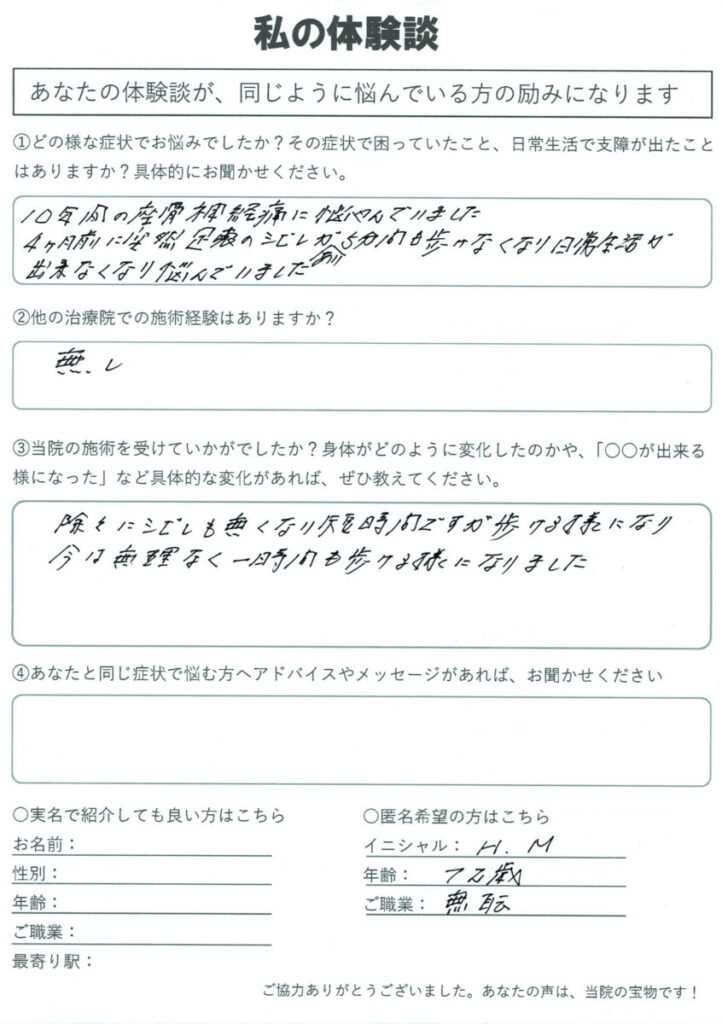 私の体験談
あなたの体験談が、同じように悩んでいる方の励みになります
①どの様な症状でお悩みでしたか？その症状で困っていたこと、日常生活で支障が出たこと
はありますか？具体的にお聞かせください。
10年間の座骨神経痛に悩んでいました
4ヶ月前に突然足裏のシビレがあり5分間も歩けなくなり日常生活が
出来なくなり悩んでいました
②他の治療院での施術経験はありますか？
無し
③当院の施術を受けていかがでしたか？身体がどのように変化したのかや、「〇〇が出来る
様になった」など具体的な変化があれば、ぜひ教えてください。
除々にシビレも無くなり短時間ですが歩ける様になり
今は無理なく一時間も歩ける様になりました
④あなたと同じ症状で悩む方へアドバイスやメッセージがあれば、お聞かせください
〇実名で紹介しても良い方はこちら
お名前：
性別：
年齢：
ご職業：
最寄り駅：
〇匿名希望の方はこちら
イニシャル： H. M
年齢： 72歳
ご職業： 無職
ご協力ありがとうございました。あなたの声は、当院の宝物です！